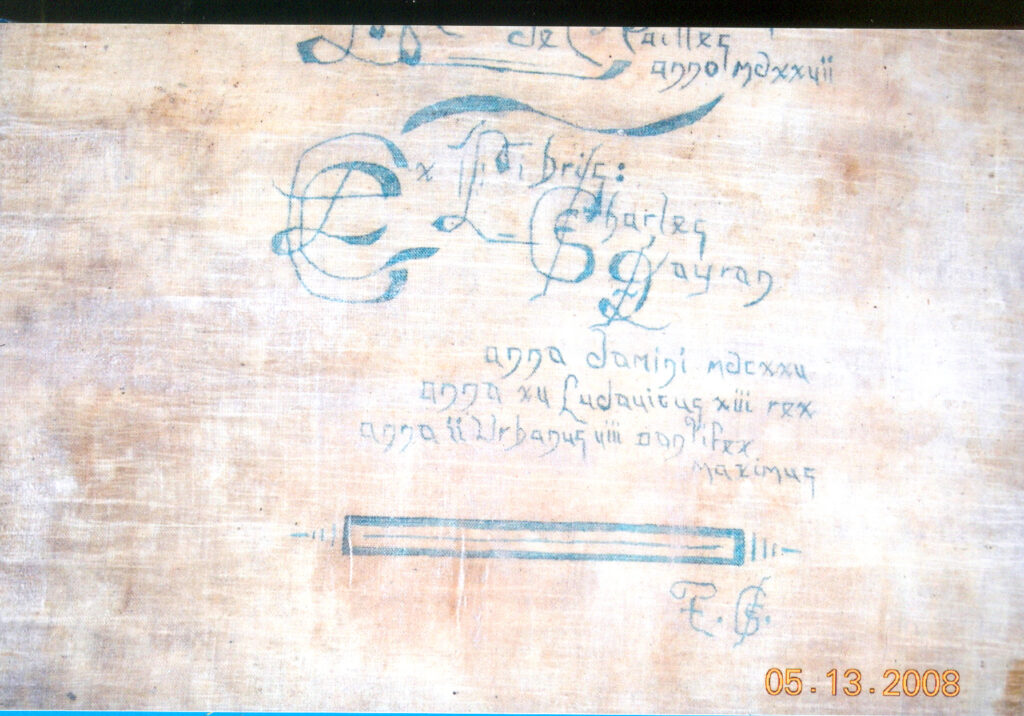 de
anno mdxxvii
Ex Libris:
Charles
anno domini mdcxxv
anno xv Ludovicus xiii rex
anno ii Urbanus viii pontifex
maximus
05.13.2008